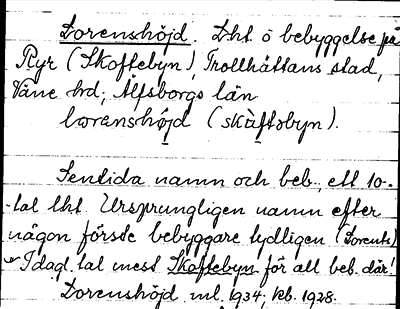 Lorenshöjd. Lht o bebyggelse på
Ryr (Skoftebyn), Trollhättans stad,
Väne hd; Älfsborgs län
lorenshøjd (skåftəbyn).
Sentida namn och beb., ett 10-
-tal lht. Ursprungligen namn efter
någon förste bebyggare tydligen (Lorents)
I dagl. tal mest Skoftebyn för all beb. där!
Lorenshöjd ml. 1934, kb. 1928.